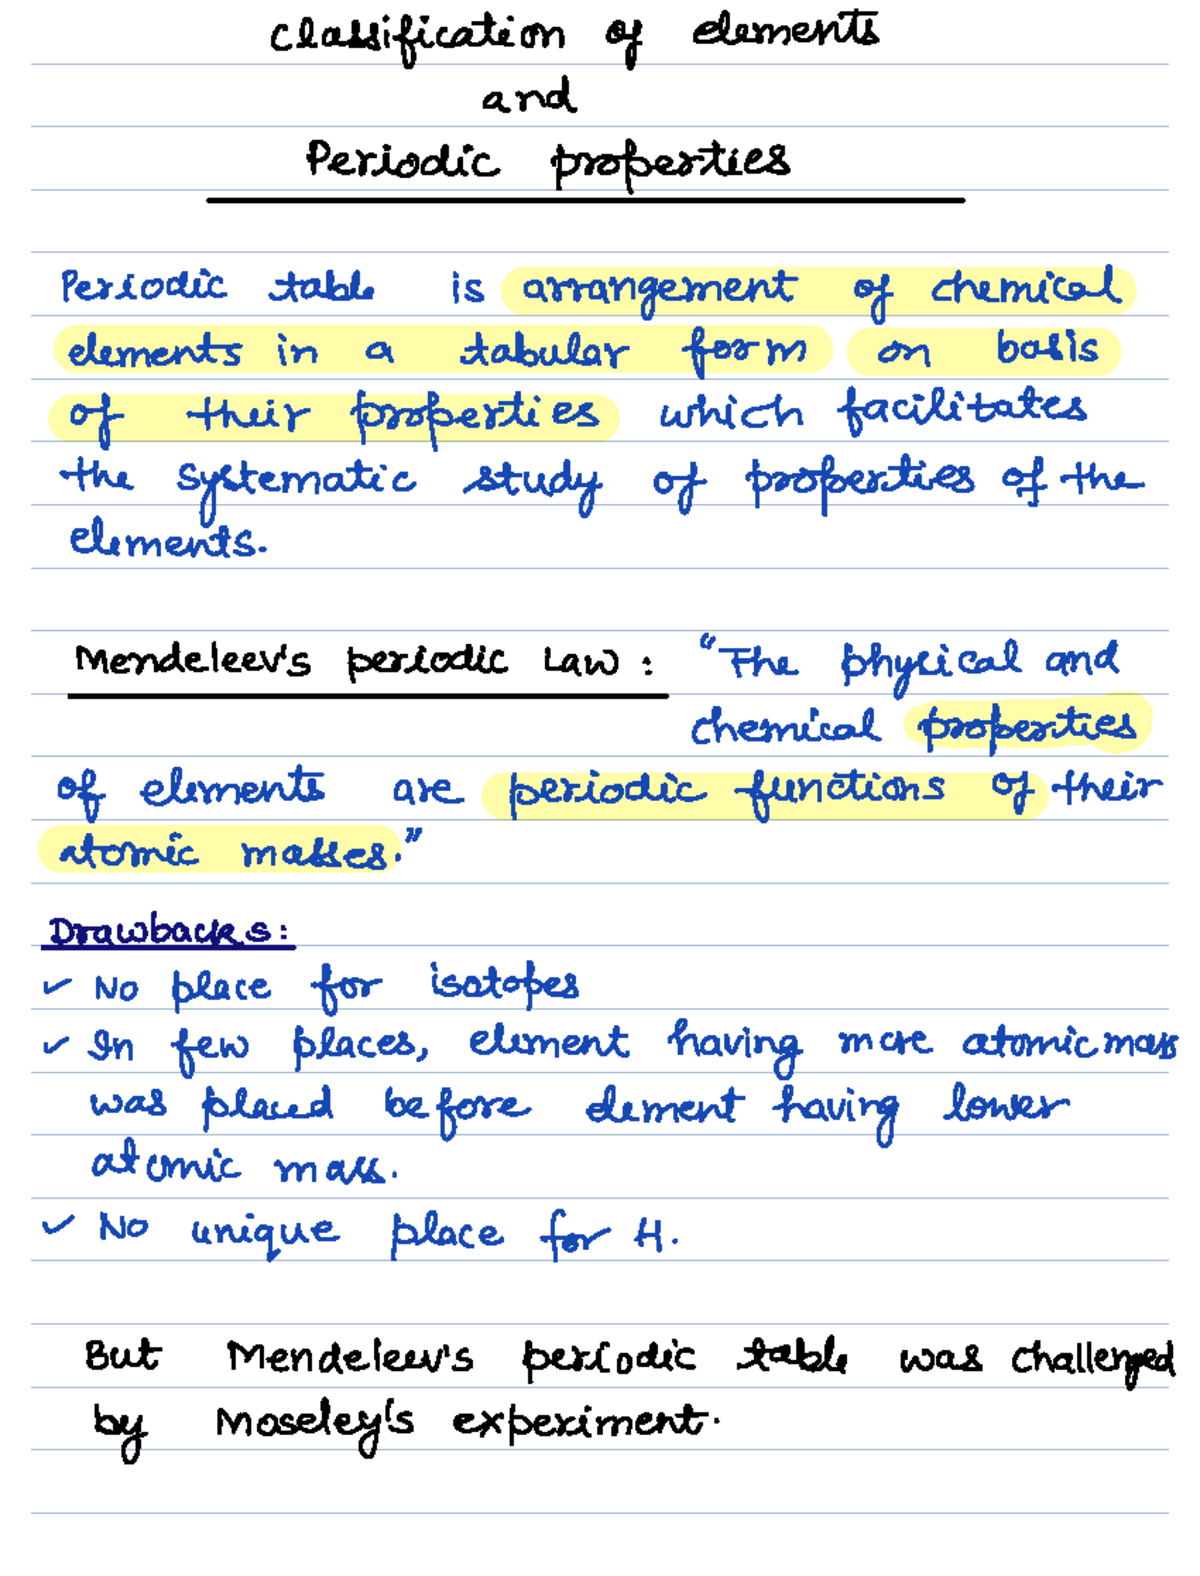 Classification of elements
and
Periodic properties
Periodic table is arrangement of chemical
elements in a tabular form on basis
of their properties which facilitates
the systematic study of properties of the
elements.
Mendeleev's periodic Law : "The physical and
chemical properties
of elements are periodic functions of their
atomic masses."
Drawbacks:
✓ No place for isotopes
✓ In few places, element having more atomic mass
was placed before element having lower
atomic mass.
✓ No unique place for H.
But Mendeleev's periodic table was challenged
by Moseley's experiment.